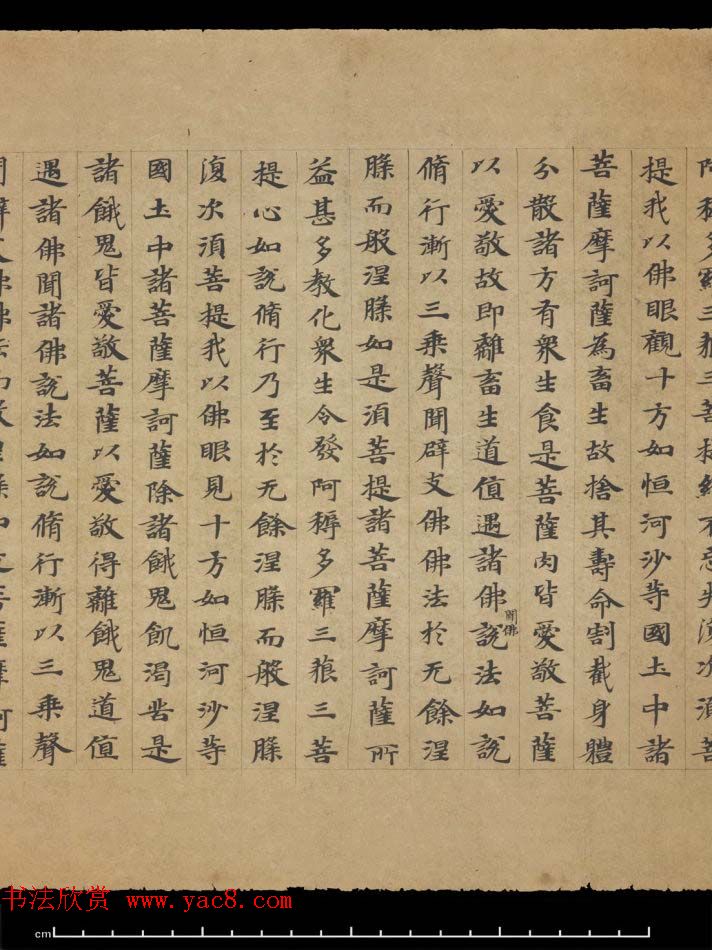 阿耨多羅三藐三菩提終不忘失復次須菩
提我以佛眼觀十方如恒河沙等國土中諸
菩薩摩訶薩為畜生故捨其壽命割截身體
分散諸方有衆生食是菩薩肉皆愛敬菩薩
以愛敬故即離畜生道值遇諸佛聞佛說法如說
脩行漸以三乘聲聞辟支佛佛法於无餘涅
槃而般涅槃如是須菩提諸菩薩摩訶薩所
益甚多教化衆生令發阿耨多羅三藐三菩
提心如說脩行乃至於无餘涅槃而般涅槃
復次須菩提我以佛眼見十方如恒河沙等
國土中諸菩薩摩訶薩除諸餓鬼飢渴苦是
諸餓鬼皆愛敬菩薩以愛敬得離餓鬼道值
遇諸佛聞諸佛說法如說脩行漸以三乘聲
书法欣赏 www.yac8.com
cm